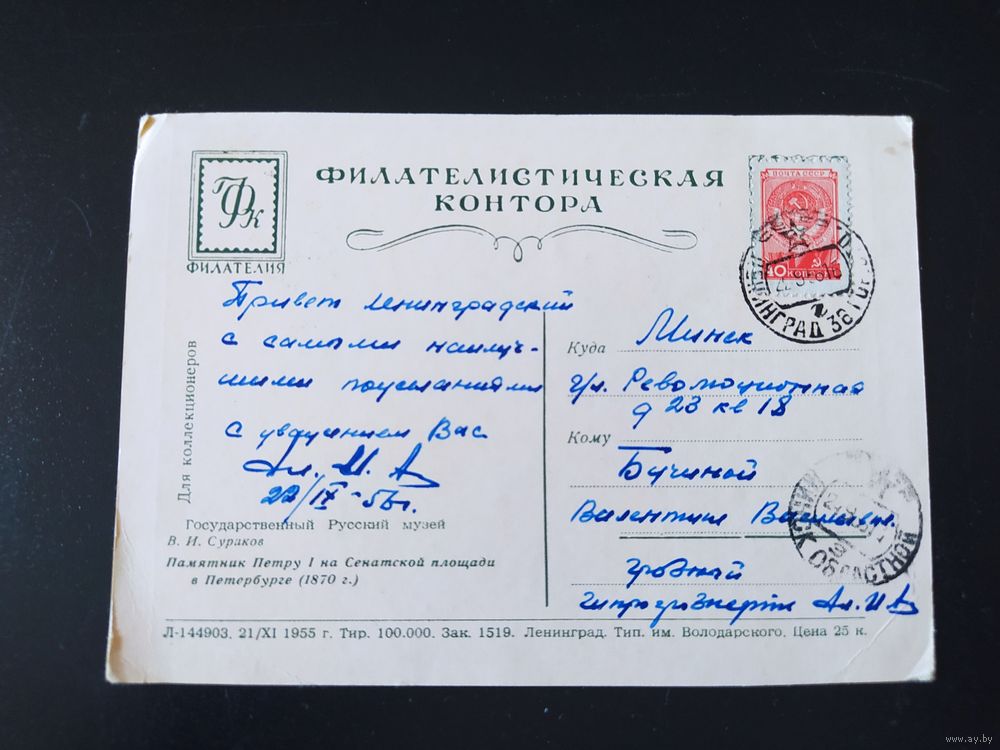 ФК
ФИЛАТЕЛИЯ
ФИЛАТЕЛИСТИЧЕСКАЯ
КОНТОРА
ПОЧТА СССР
40 КОПЕЕК
ЛЕНИНГРАД 36
Для коллекционеров
Привет Ленинградский
с самыми наилуч-
шими пожеланиями
с уважением Вас
Ал. И. А
22/IX-56г.
Государственный Русский музей
В. И. Сураков
Памятник Петру I на Сенатской площади
в Петербурге (1870 г.)
Куда Минск
ул. Революционная
д 23 кв 18
Кому Бучиной
Валентине
Грозный
Гипрогрознефть Ал. И А
ОБЛАСТНОЙ
Л-144903. 21/XI 1955 г. Тир. 100.000. Зак. 1519. Ленинград. Тип. им. Володарского. Цена 25 к.
www.ay.by